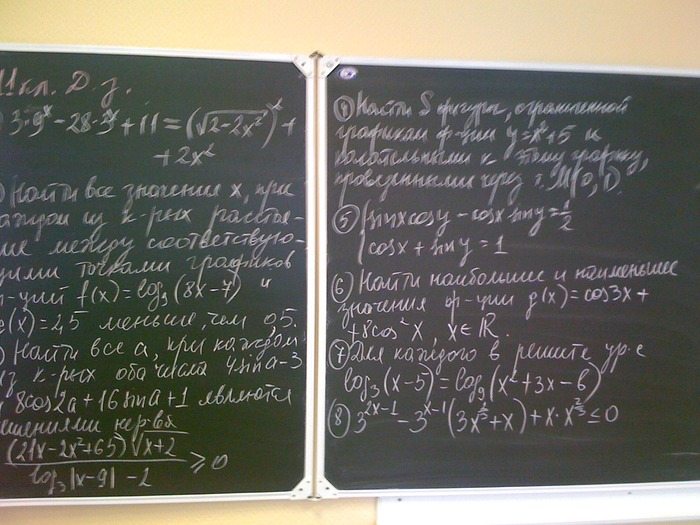 11 кл. Д. з.
3·9ˣ - 28·3ˣ + 11 = (√2-2x²)² +
+ 2x²
) Найти все значения x, при
каждом из к-рых расстоя-
ние между соответствую-
щими точками графиков
ф-ций f(x) = log₉(8x-7) и
g(x) = 2,5 меньше, чем 0,5.
) Найти все a, при каждом
из к-рых оба числа 4sina-3
и 8cos2a + 16sina + 1 являются
решениями нер-ва
(21x - 2x² + 65)√x+2
log₃|x-9| - 2 ≥ 0
④ Найти S фигуры, ограниченной
графиком ф-ции y = x² + 5 и
касательными к этому графику,
проведенными через т. M(0,1).
⑤ { sinx cosy - cosx siny = 1/2
cosx + siny = 1
⑥ Найти наибольшее и наименьшее
значения ф-ции g(x) = cos3x +
+ 8cos²x, x∈ℝ.
⑦ Для каждого в решите ур-е
log₃(x-5) = log₉(x²+3x-в)
⑧ 3²ˣ⁻¹ - 3ˣ⁻¹(3x^(2/3) + x) + x·x^(2/3) ≤ 0